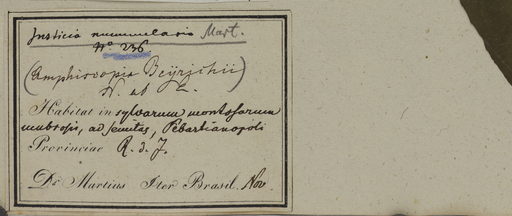 Justicia nummularia Mart.
No 236
(Amphiscopia Beyrichii)
N. ab E.
Habitat in sylvarum montosarum
umbrosis, ad semitas, Sebastianopoli
Provinciae R. d. J.
Dr Martius Iter Brasil. Nov.